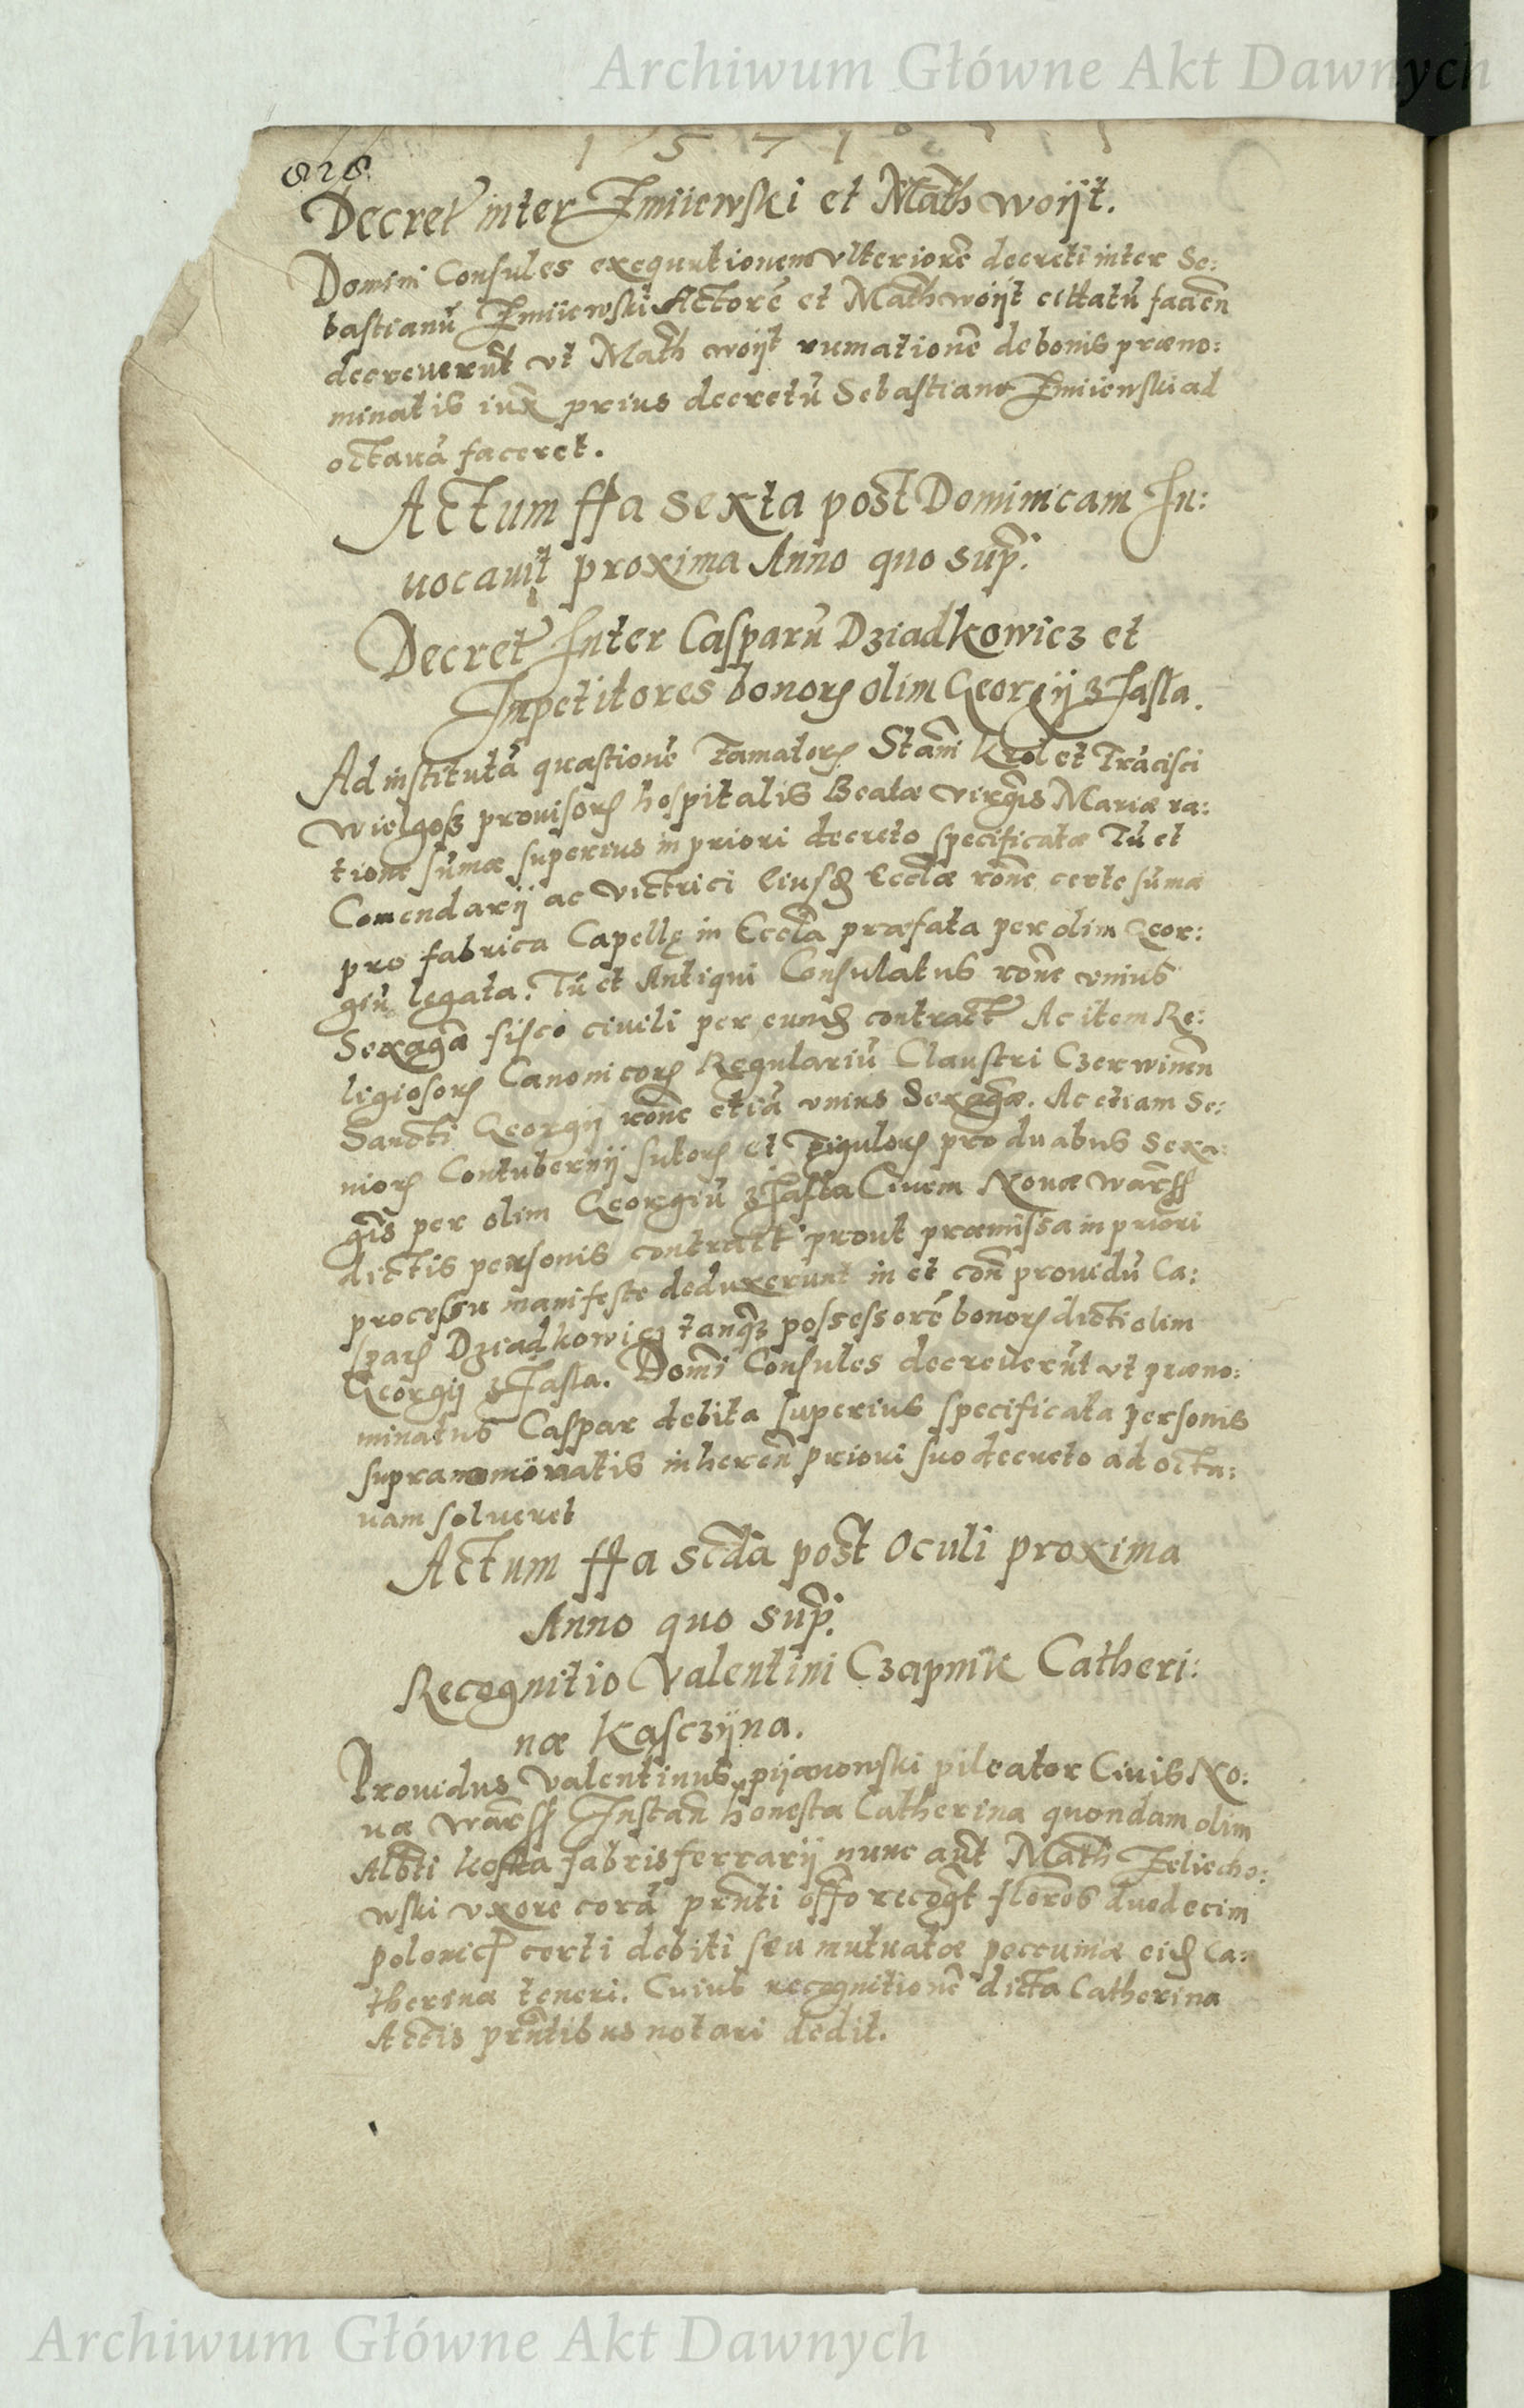 Archiwum Główne Akt Dawnych
1 5 7 1
828
Decret inter Żmiiewski et Math woijt.
Domini Consules exequutionem vlteriorē decreti inter Se:
bastianū Żmiiewski Actorē et Math woijt cittatū facien̄
decreuerūt vt Math woijt rumationē de bonis præno:
minatis iux prius decretū Sebastiano Żmiiewski ad
octauā faceret.
Actum ffa sexta post Dominicam In:
uocauit proxima Anno quo sup̄:
Decret Inter Casparū Dziadkowicz et
Inpetitores bonorꝝ olim Georgij zJasla.
Ad institutā quæstionē Famatorꝝ Stāni Krol et Frācisci
Wielgosz prouisorꝝ hospitalis Beatæ virgīs Mariæ ra:
tione sūmæ superius in priori decreto specificatæ Tū et
Comendarij ac victrici eiusd Ecclæ rōne certe sūmæ
pro fabrica Capellę in Eccla præfata per olim Geor:
giū legata. Tū et Antiqui Consulatus rōne vnius
Sexagā fisco ciuili per eund contract Ac item Re:
ligiosorꝝ Canonicorꝝ Regulariū Claustri Czerwinēn
Sancti Georgij rōne etiā vnius Sexagæ. Ac etiam Se:
niorꝝ Contubernij sutorꝝ et Figulorꝝ pro duabus sexa:
gīs per olim Georgiū zJasla Ciuem Nouæ warss
dictis personis contract prout præmissa in priori
processu manifeste deduxerunt in et con̄ prouidū Ca:
sparꝝ Dziadkowicz tanqz possessorē bonorꝝ dicti olim
Georgij zJasla. Domī Consules decreuerūt vt præno:
minatus Caspar debita superius specificata personis
supranominatis inheren̄ priori suo decreto ad octa:
uam solueret
Actum ffa scda post Oculi proxima
Anno quo sup̄:
Recognitio Valentini Czapnik Catheri:
næ Kasczijna.
Prouidus Valentinus pijanowski pileator Ciuis No:
uæ warss Instan̄ honesta Catherina quondam olim
Albti koska fabris ferrarij nunc aūt Math Żeliecho:
wski vxore corā prnti offo recogt florēs duodecim
polonic certi debiti seu mutuatæ peccuniæ eid Ca:
therinæ teneri. Cuius recognitionē dicta Catherina
Actis prntibus notari dedit.
Archiwum Główne Akt Dawnych